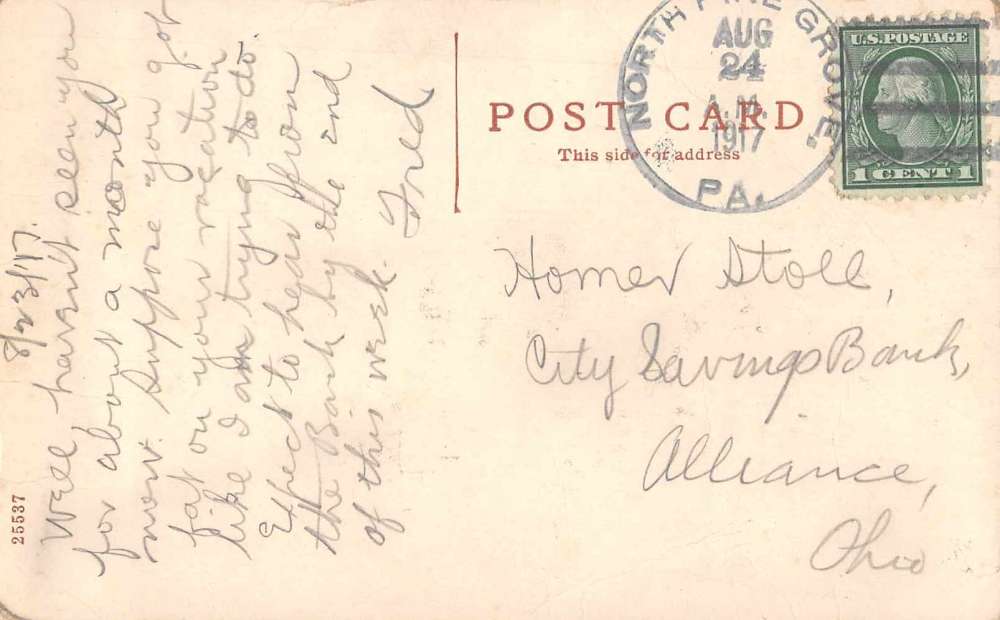 8/23/17.
Well, havent seen you
for about a month
now. Suppose you got
fat on your vacation
like I am trying to do.
Expect to hear from
the Bank by the end
of this week. Fred
25537
NORTH PINE GROVE.
AUG
24
A.M.
1917
PA.
U.S. POSTAGE
1 CENT 1
POST CARD
This side for address
Homer Stoll,
City Savings Bank,
Alliance,
Ohio